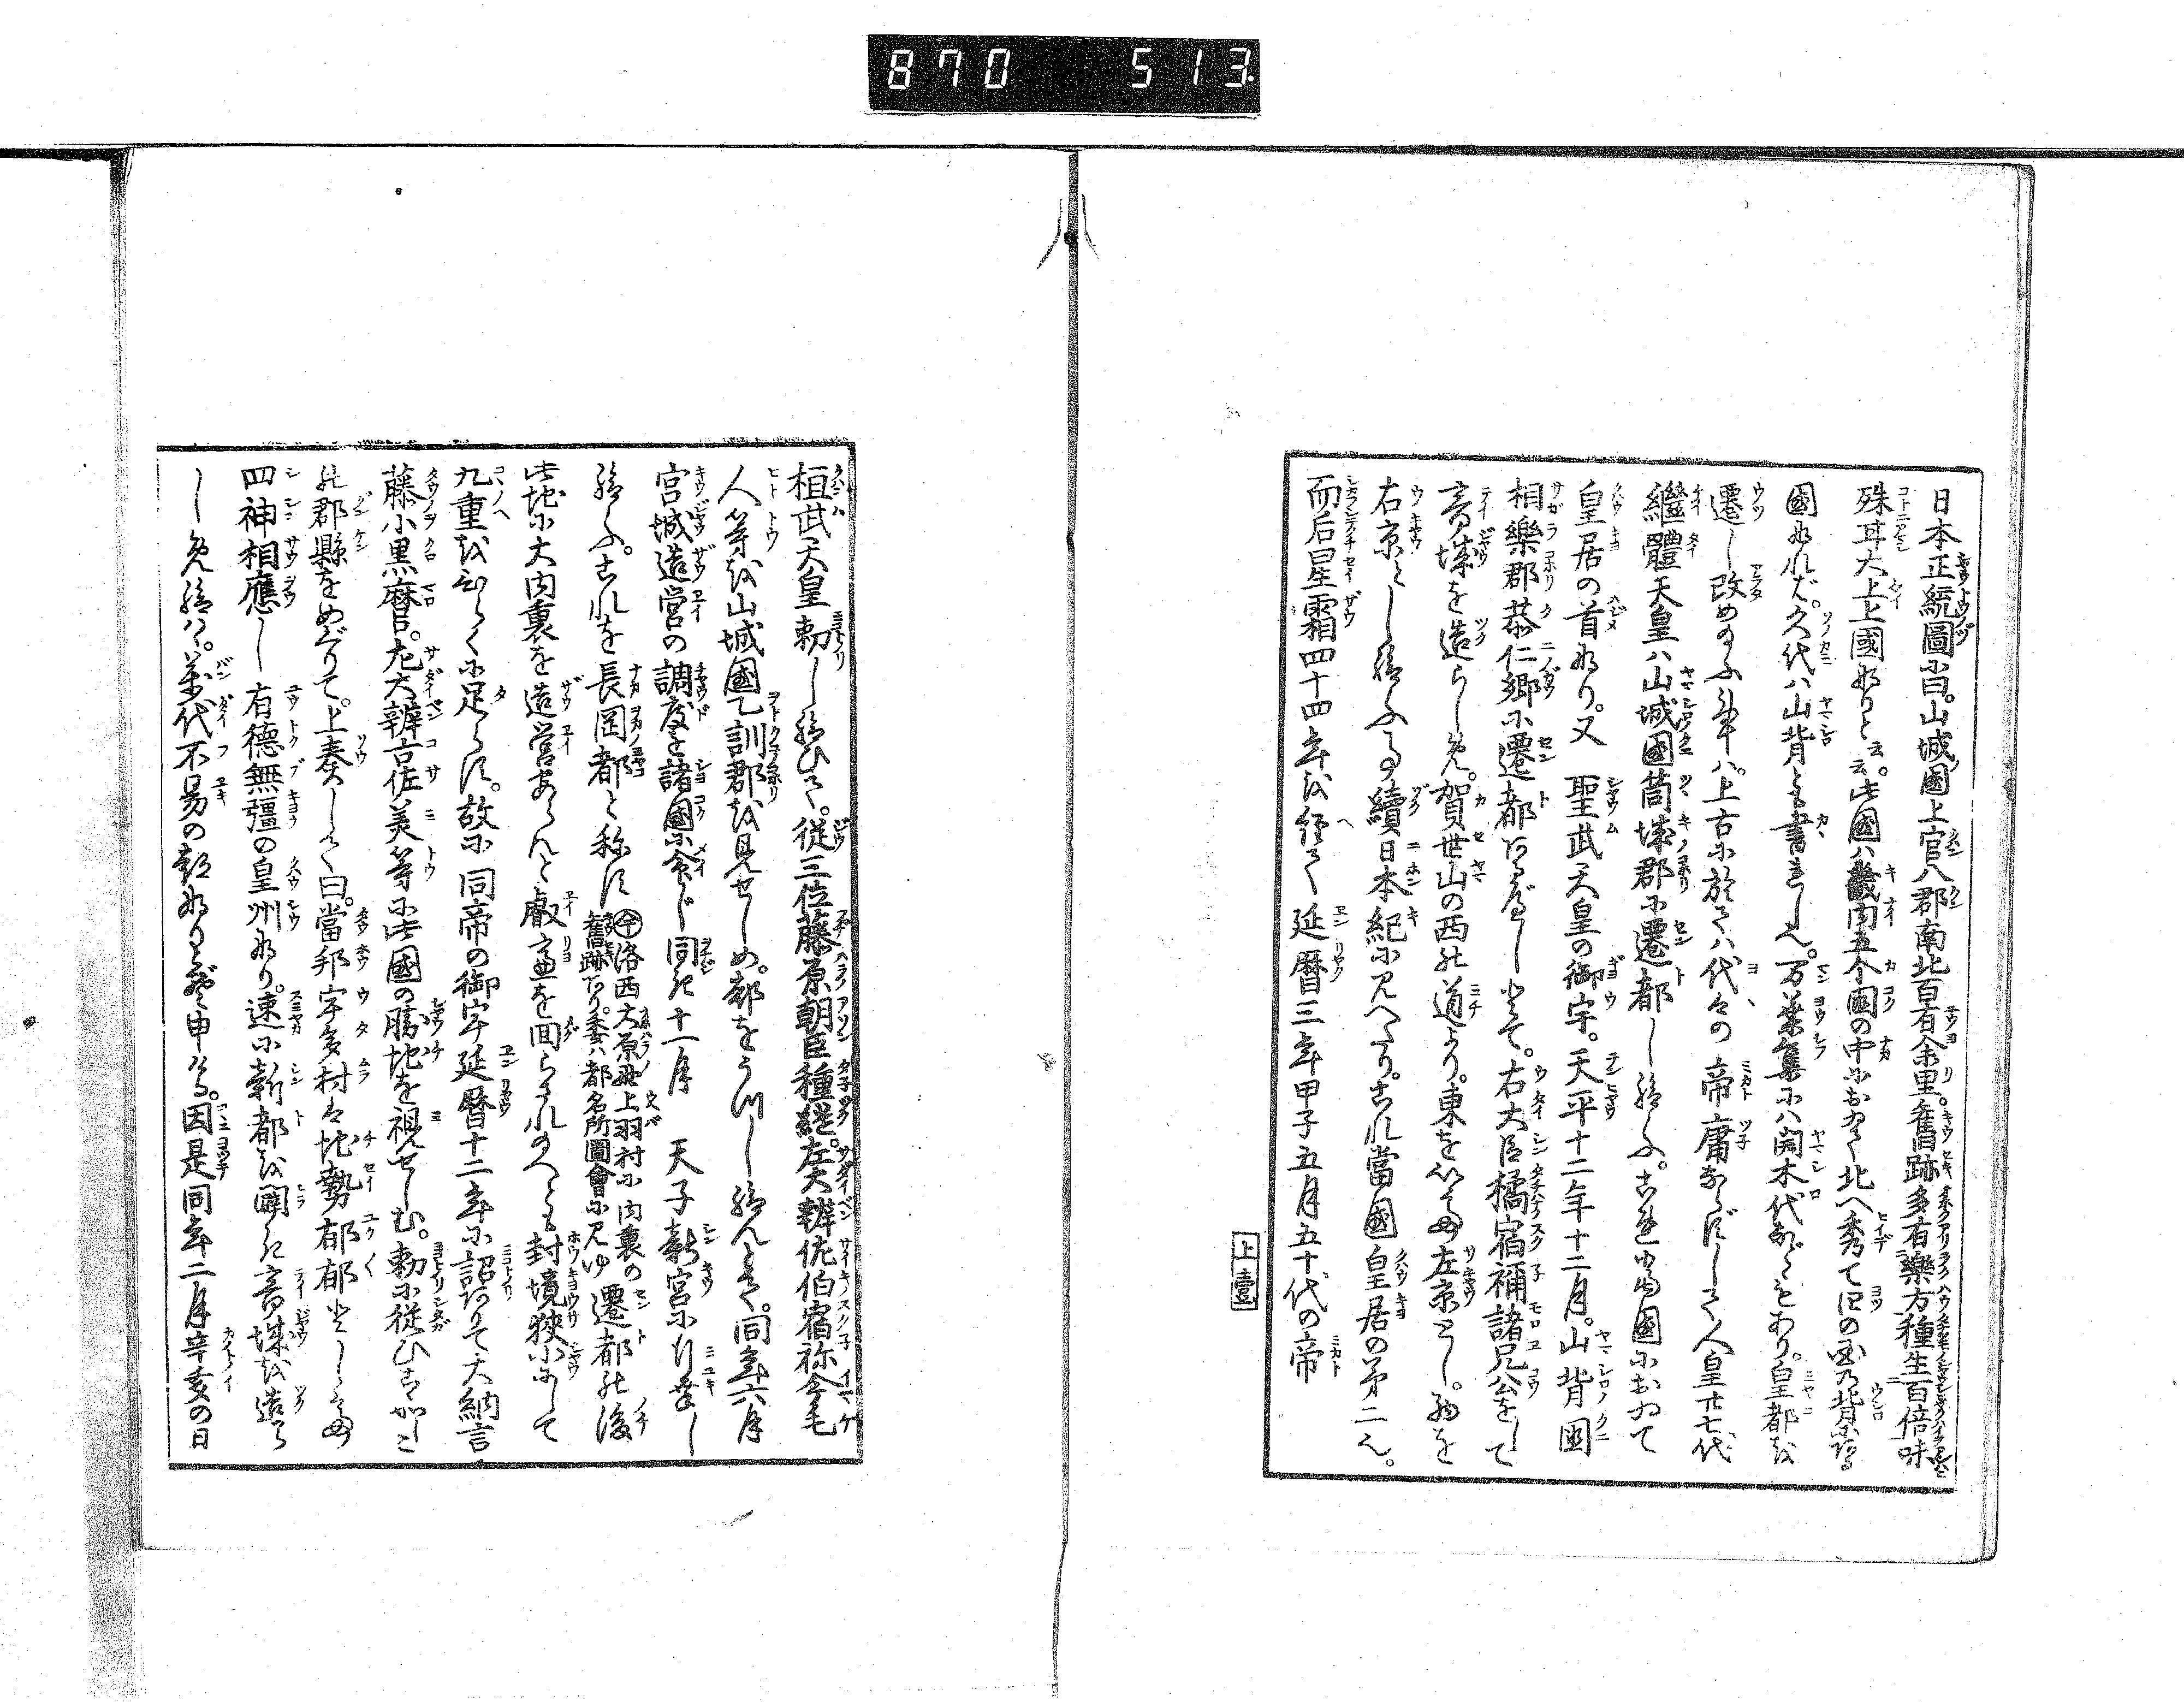 870 513
日本正統圖に曰。山城國上官八郡南北百有余里。舊跡多有樂方種生百倍味
殊耳大上上國なりと云云。此國ハ畿内五个國の中におゐて北へ秀て四の国乃背にある
國なれバ。久代ハ山背とも書きし也。万葉集にハ開木代などとあり。皇都を
遷し改めあふ事ハ。上古に於てハ代々の帝庸ならずして人皇廿七代
繼體天皇ハ山城國筒城郡に遷都し給ふ。これ当國におゐて
皇居の首なり。又 聖武天皇の御宇。天平十二年十二月。山背國
相樂郡恭仁郷に遷都あるべしとて。右大臣橘宿禰諸兄公をして
京城を造らしめ。賀世山の西の道より。東を以て左京とし。西を
右京とし給ふ事續日本紀に見へたり。これ當國皇居の第二也。
而后星霜四十四年を経て 延暦三年甲子五月五十代の帝
上壹
桓武天皇勅し給ひて。従三位藤原朝臣種継。左大辨佐伯宿祢今毛
人等を山城國乙訓郡を見せしめ。都をうつし給んとて。同年六月
宮城造営の調度を諸國に命じ同年十一月 天子新宮に行幸し
給ふ。これを長岡都と称す ㊉今洛西大原野上羽村に内裏の
舊跡あり。委ハ都名所圖會に見ゆ 遷都の後
此地に大内裏を造営あらんと叡慮を回らされのへとも封境狭小にして
九重をひらくに足らず。故に同帝の御宇延暦十二年に詔ありて大納言
藤小黒麿。左大辨古佐美等に此國の勝地を視せしむ。勅に従ひ古かしこ
の郡縣をめぐりて。上奏して曰。當邦宇多村は地勢郁郁として
四神相應し 有徳無彊の皇州なり。速に新都を開き京城を造ら
しめ給ハヾ。萬代不易の都なりとぞ申ける。因是同年二月辛亥の日